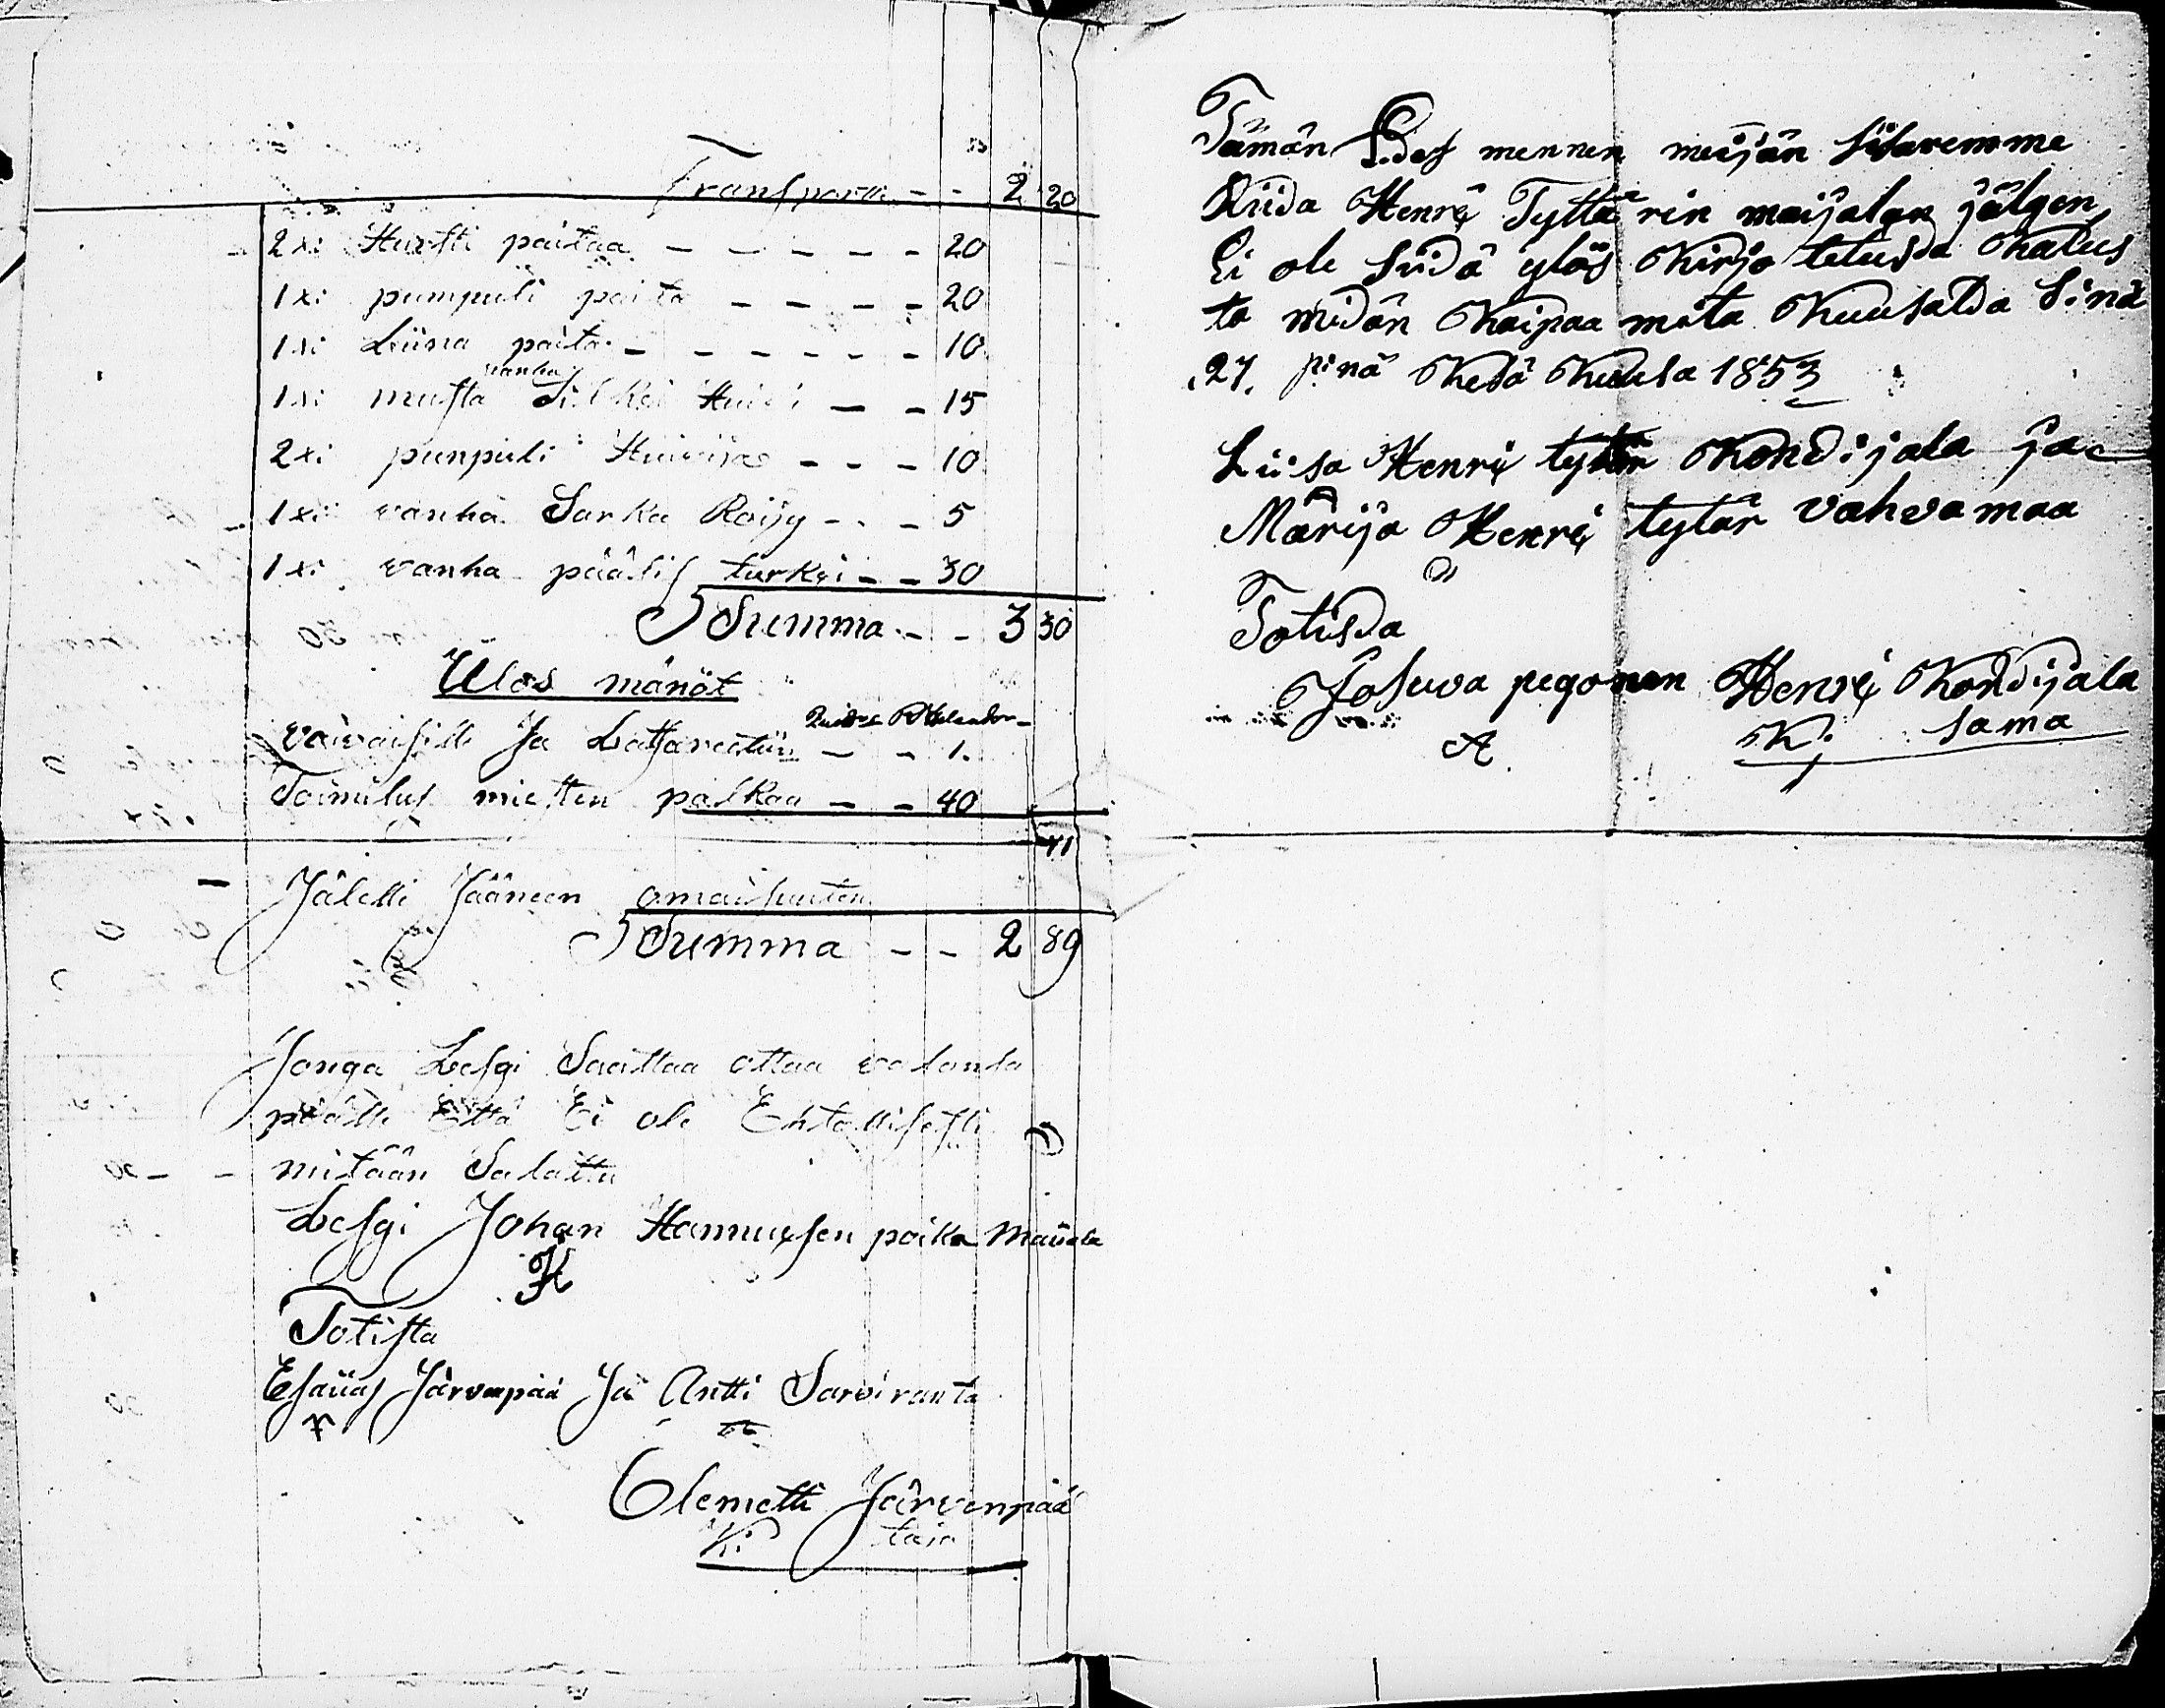 Transportti - - 2 20
2xi Hursti paitaa - - - - - 20
1xi pumpuli paita - - - - 20
1xi Liina paita - - - - - - 10
vanha
1xi musta Silkki Huivi - - 15
2xi punpuli Huivija - - - 10
1xi vanha Sarka Roijy - - - 5
1xi vanha päälis turkki - - 30
Summa - - 3 30
Ulos mänöt
vaivaisille Ja Latsarettiin - - 1.
Toimitus miesten palkaa - - 40
41
Jälelle Jääneen omaisuuten
Summa - - 2 89
Jonga Lesgi Saattaa ottaa valansa
päälle Että Ei ole Ehtollisesti
mitään Salattu
Lesgi Johan Hannuksen poika Maijala
Totista
Esaias Järvenpää Ja Antti Sarviranta
Clemetti Järvenpää
Ki taja
Tämän Edes mennen meijän Sisaremme
Riida Henri Tyttärin maijalan jälgen
Ei ole Siidä ylös Kirjo tetusda Kalus
ta midän Kaipaa mista Kuusalda Sinä
27. pinä Kesä Kuusa 1853
Liisa Henri tytär Kondijala ja
Marija Henri tytär vahvamaa
Totisda
Josuva pegonen Henri Kondijala
A K: sama